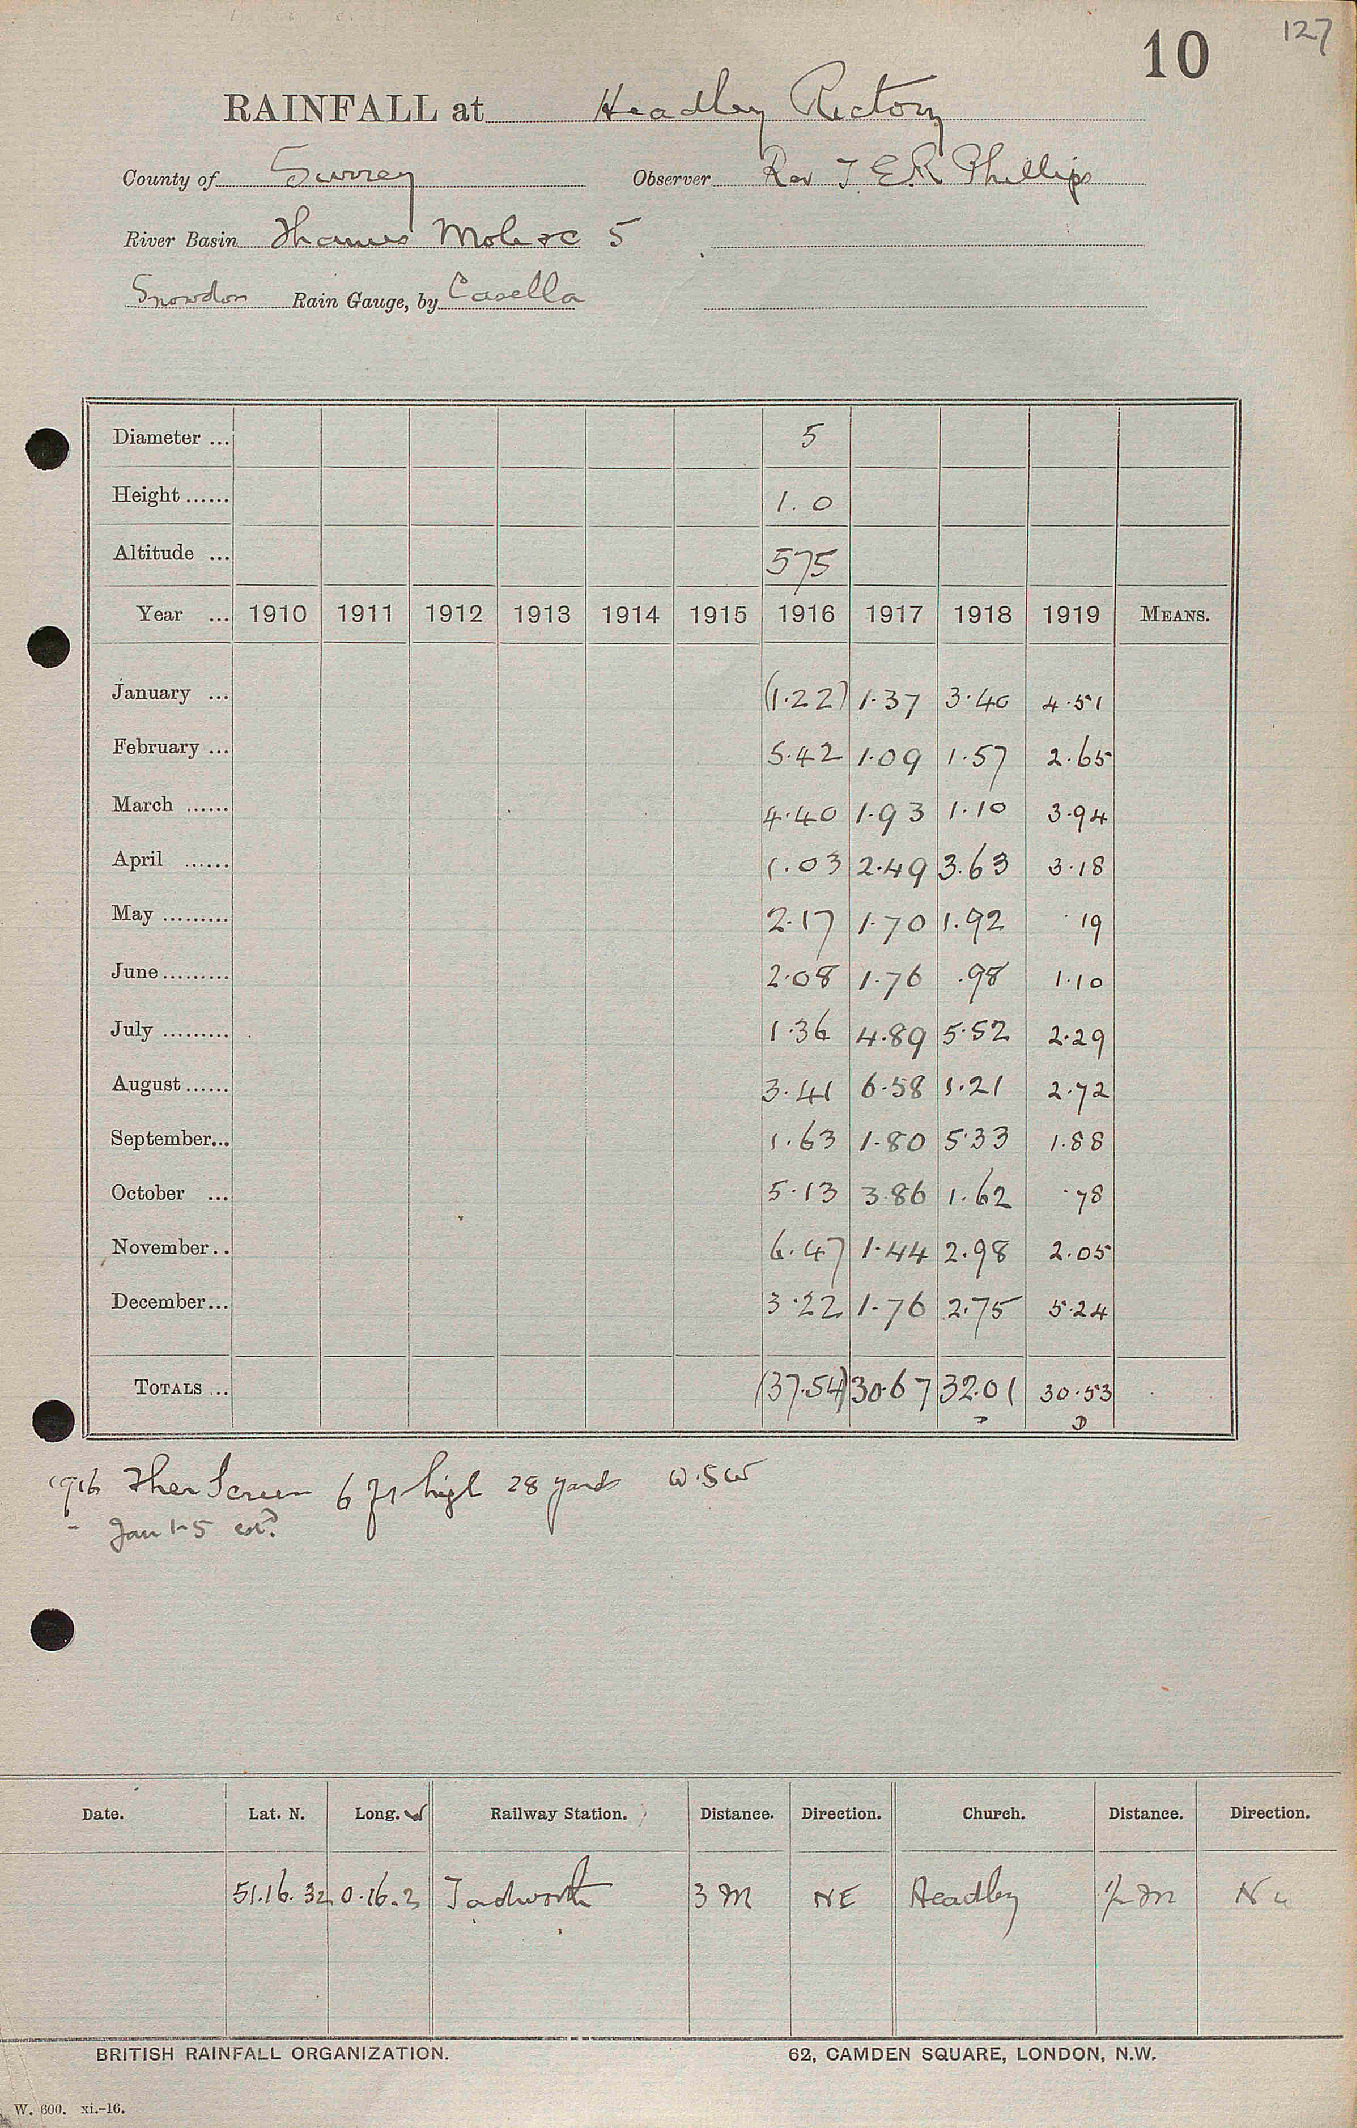 127
10
RAINFALL at Headley Rectory
County of Surrey Observer Rev T. E.R. Phillips
River Basin Thames Mole &c 5
Snowdon Rain Gauge, by Casella
Diameter ... 5
Height ...... 1.0
Altitude ... 575
Year ... 1910 1911 1912 1913 1914 1915 1916 1917 1918 1919 MEANS.
January ... (1.22) 1.37 3.40 4.51
February ... 5.42 1.09 1.57 2.65
March ...... 4.40 1.93 1.10 3.94
April ...... 1.03 2.49 3.63 3.18
May ......... 2.17 1.70 1.92 .19
June ......... 2.08 1.76 .98 1.10
July ......... 1.36 4.89 5.52 2.29
August ...... 3.41 6.58 1.21 2.72
September... 1.63 1.80 5.33 1.88
October ... 5.13 3.86 1.62 .78
November.. 6.47 1.44 2.98 2.05
December... 3.22 1.76 2.75 5.24
TOTALS ... (37.54) 30.67 32.01 30.53
D D
1916 Ther Screen 6 ft high 28 yards W.SW
- Jan 1-5 estd.
Date. Lat. N. Long. W Railway Station. Distance. Direction. Church. Distance. Direction.
51.16.32 0.16.2 Tadworth 3 M NE Headley 1/2 M N
BRITISH RAINFALL ORGANIZATION. 62, CAMDEN SQUARE, LONDON, N.W.
W. 600. xi.-16.